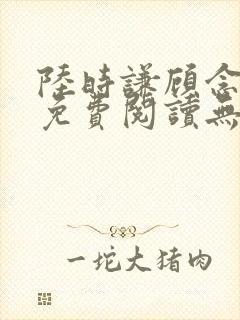 陸時謙顾念
免費閱讀無
一坨大猪肉